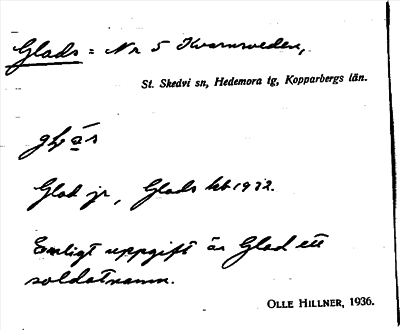 Glads = Nr 5 Kvarnsveden,
St. Skedvi sn, Hedemora tg, Kopparbergs län.
Glad jr, Glads kb 1932.
Enligt uppgift är Glad ett
soldatnamn.
OLLE HILLNER, 1936.